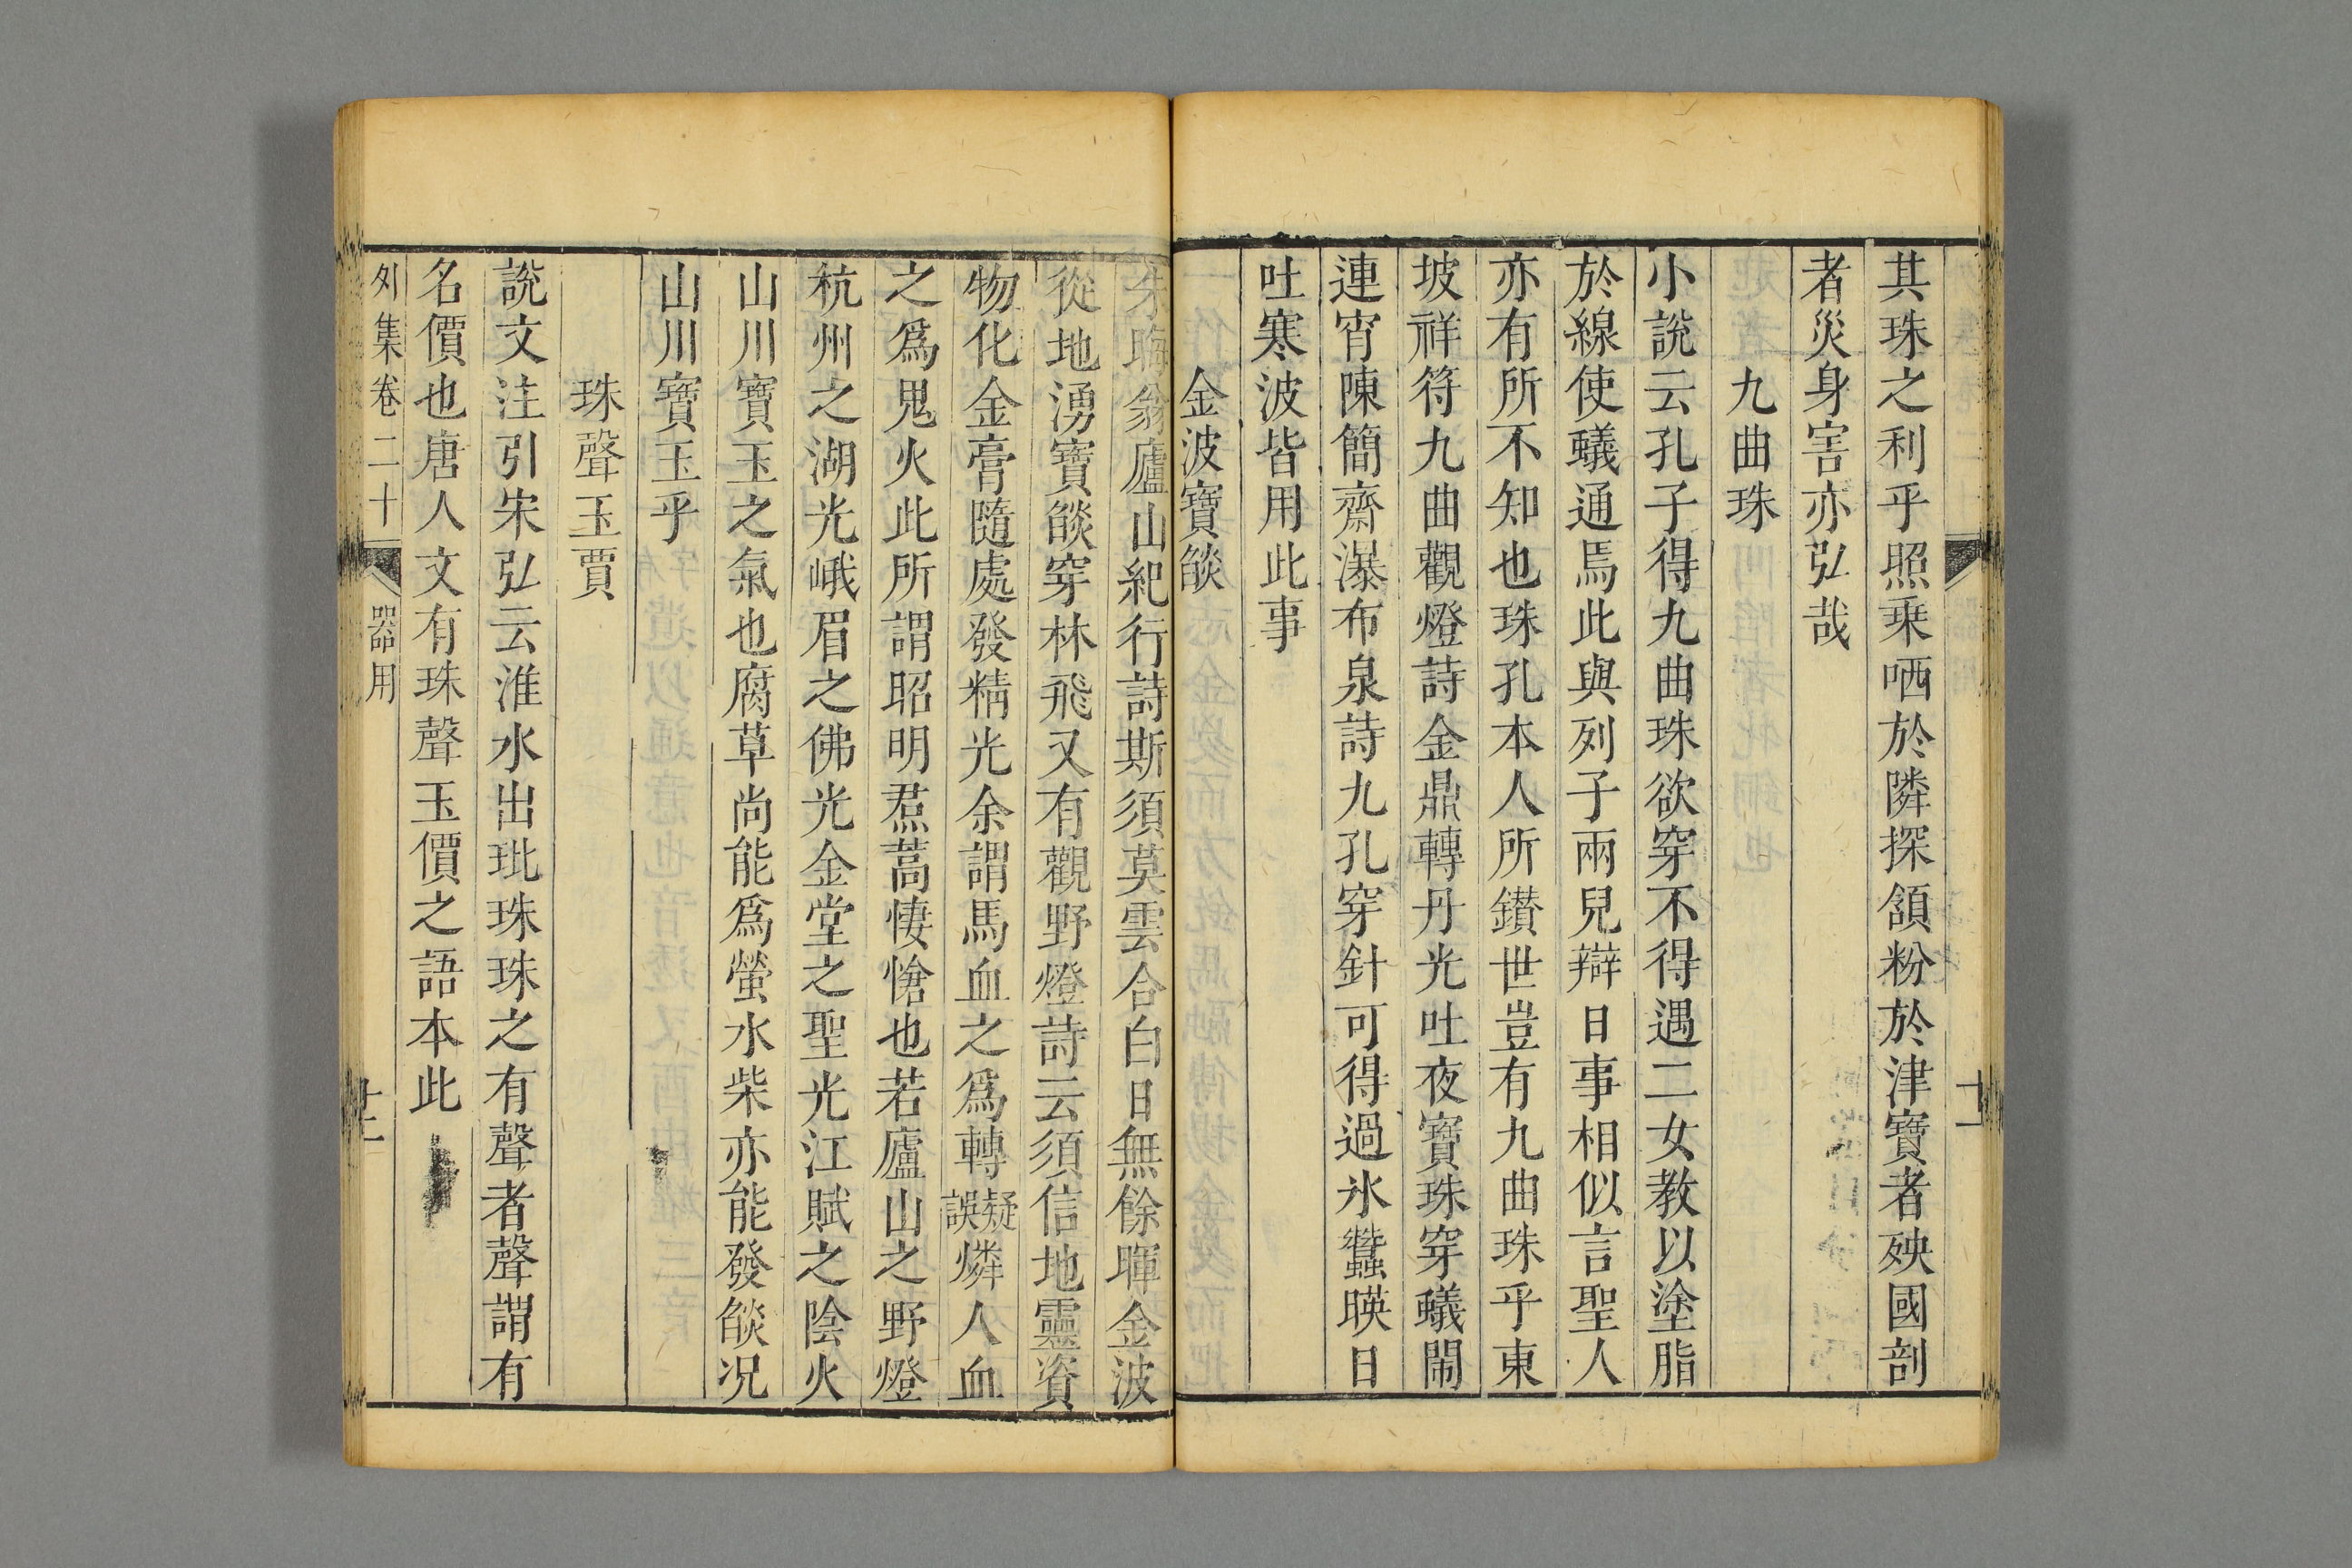 其珠之利乎照乗哂於隣探頷粉於津寶者殃國剖
者災身害亦弘哉
九曲珠
小說云孔子得九曲珠欲穿不得遇二女教以塗脂
於線使蟻通焉此與列子兩兒辯日事相似言聖人
亦有所不知也珠孔本人所鑚世豈有九曲珠乎東
坡祥符九曲觀燈詩金鼎轉丹光吐夜寶珠穿蟻鬧
連宵陳簡齋瀑布泉詩九孔穿針可得過氷蠶暎日
吐寒波皆用此事
金波寶燄
朱晦翁廬山紀行詩斯須莫雲合白日無餘暉金波
從地湧寶燄穿林飛又有觀野燈詩云須信地靈資
物化金膏隨處發精光余謂馬血之爲轉疑誤燐人血
之爲鬼火此所謂昭明焄蒿悽愴也若廬山之野燈
秔州之湖光峨眉之佛光金堂之聖光江賦之陰火
山川寶玉之氣也腐草尚能爲螢水柴亦能發燄况
山川寶玉乎
珠聲玉賈
說文注引宋弘云淮水出玭珠珠之有聲者聲謂有
名價也唐人文有珠聲玉價之語本此
外集卷二十
器用
十二
十一